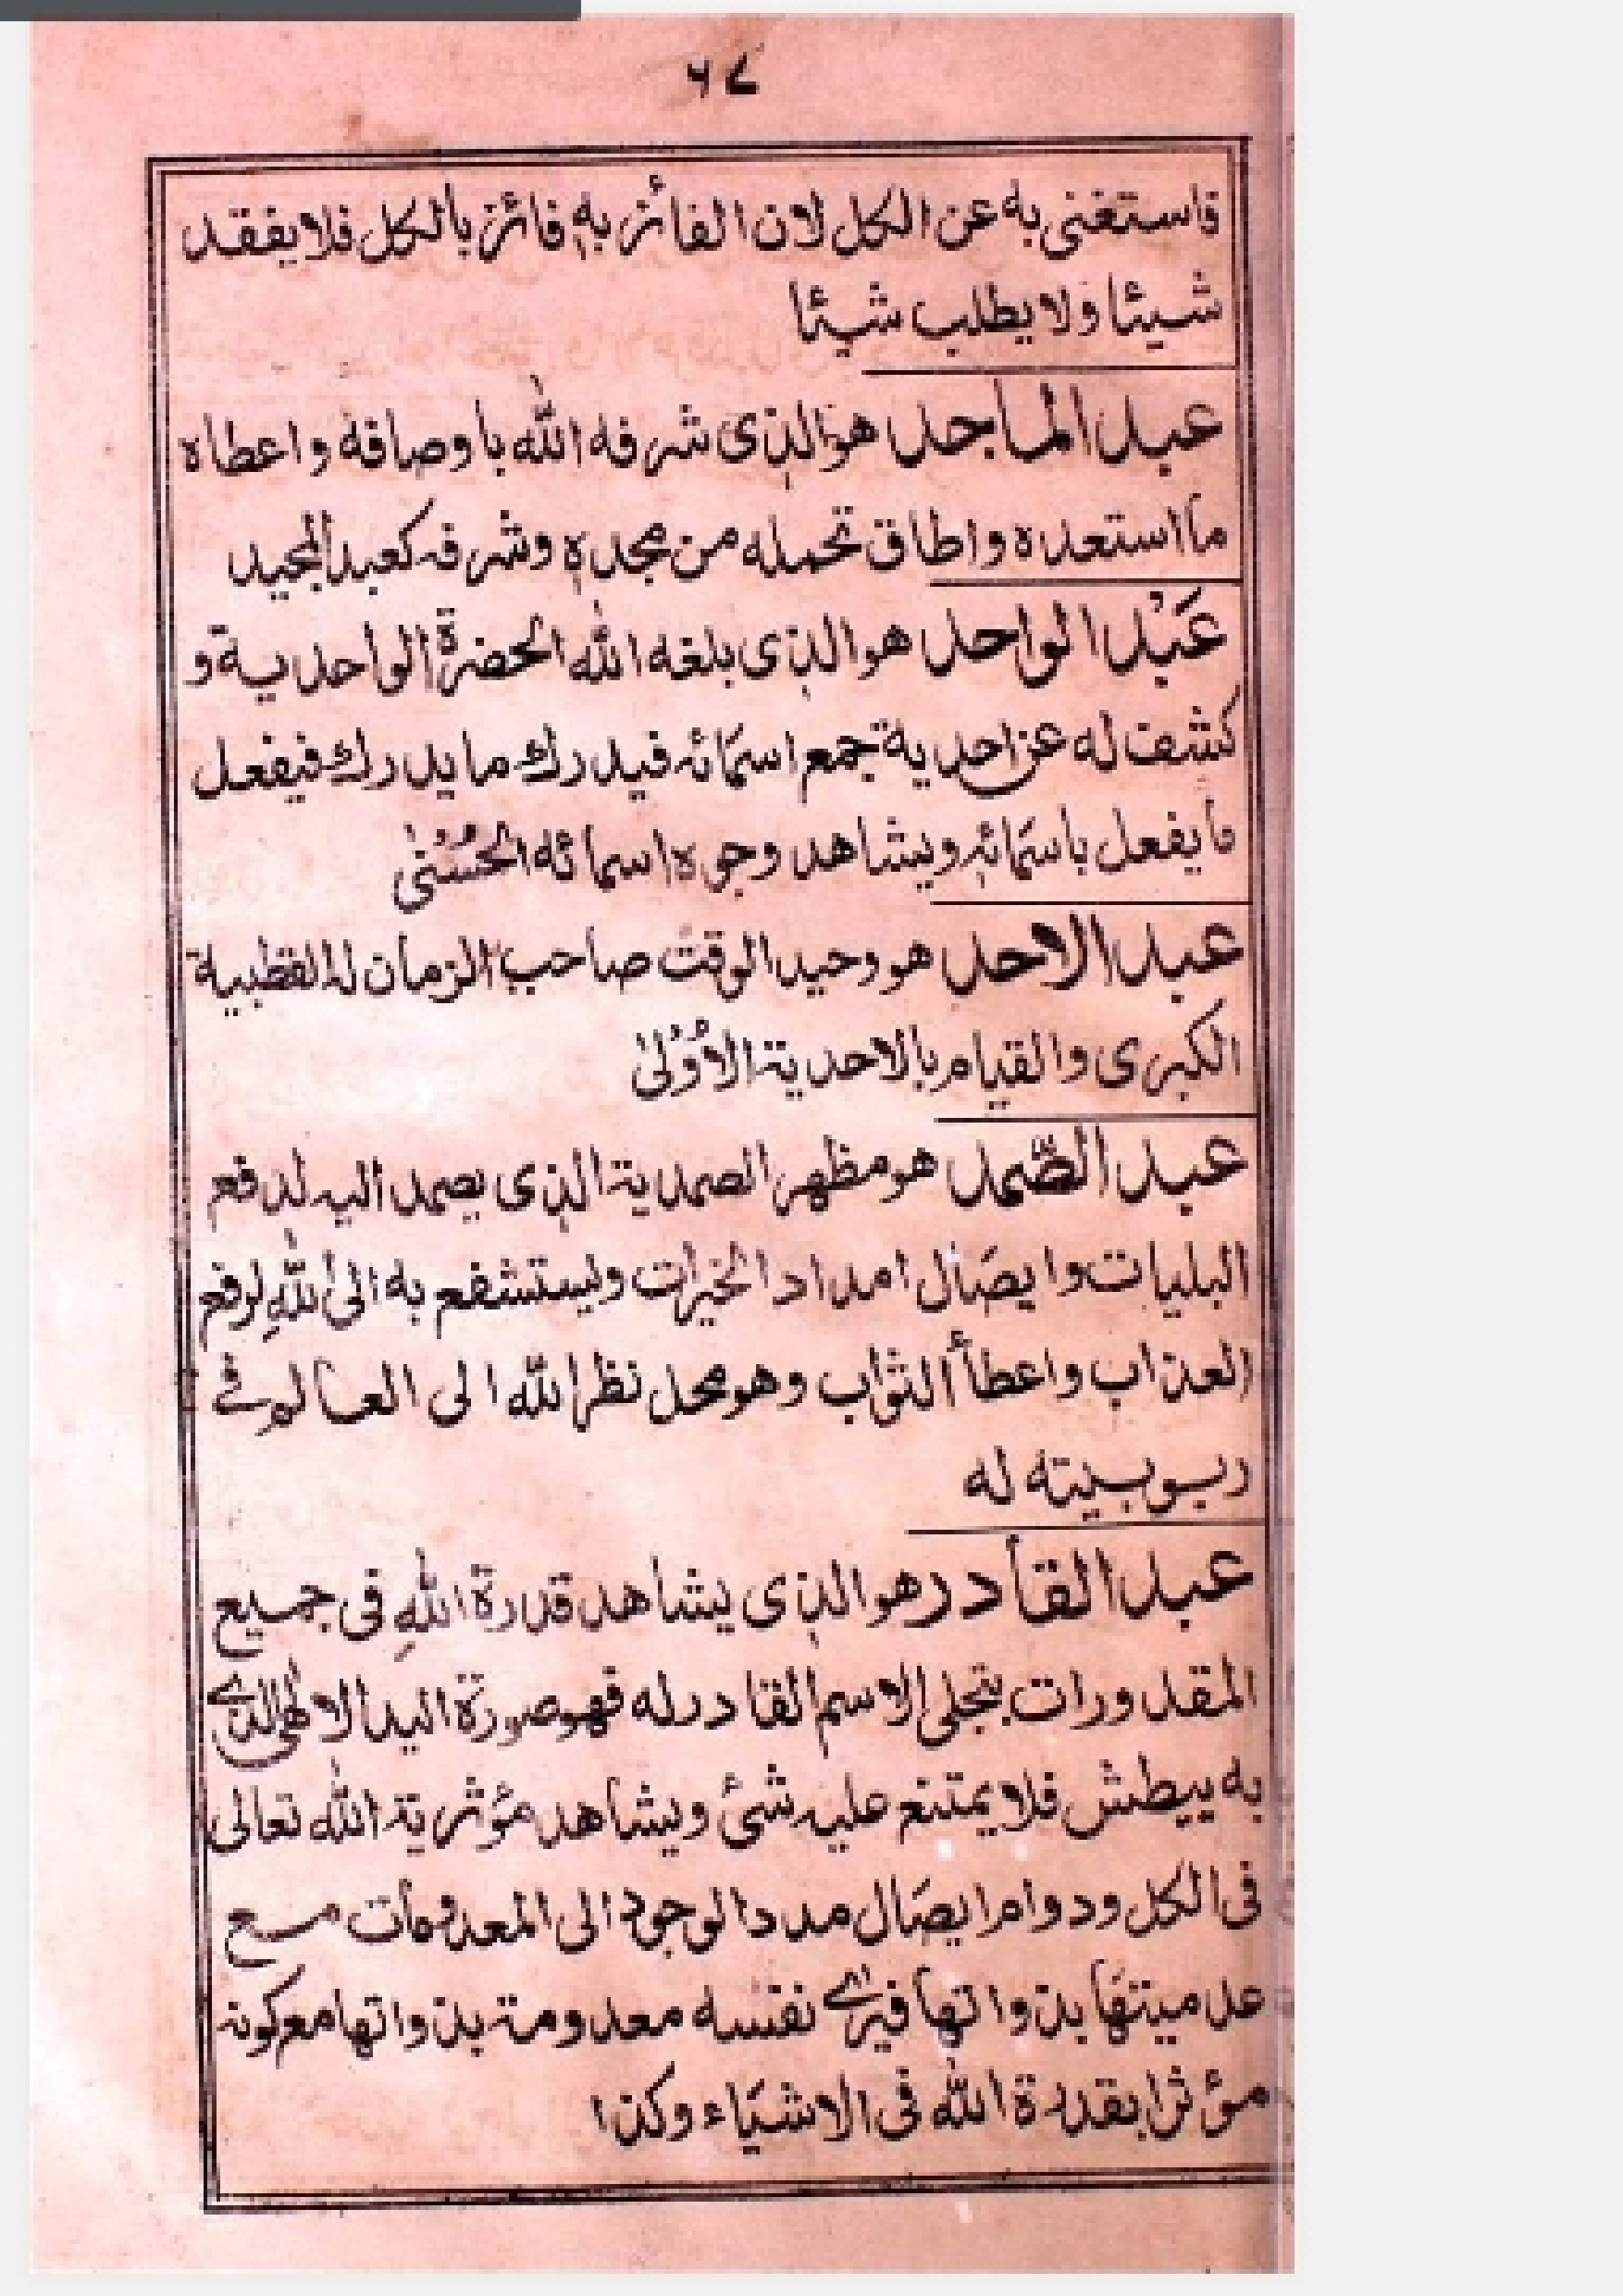 ٦٧
فاستغنى به عن الكل لان الفائز به فائز بالكل فلا يفقد
شيئا ولا يطلب شيئا
عبد الماجد هو الذى شرفه الله باوصافه واعطاه
ما استعده واطاق تحمله من مجده وشرفه كعبد المجيد
عَبْد الواحد هو الذى بلغه الله الحضرة الواحدية و
كشف له عن احدية جمع اسمائه فيدرك ما يدرك فيفعل
ما يفعل باسمائه ويشاهد وجوه اسمائه الحُسْنىٰ
عبد الاحد هو وحيد الوقت صاحب الزمان له القطبية
الكبرى والقيام بالاحدية الاُوْلىٰ
عبد الصّمد هو مظهر الصمدية الذى يصمد اليه لدفع
البليات وايصال امداد الخيرات ويستشفع به الى اللهِ لرفع
العذاب واعطأ الثواب وهو محل نظر الله الى العالم فے
ربوبيته له
عبد القادر هو الذى يشاهد قدرة اللهِ فى جميع
المقدورات بتجلى الاسم القادر له فهو صورة اليد الالٰهى الذے
به يبطش فلا يمتنع عليه شئ ويشاهد مؤثرية الله تعالى
فى الكل ودوام ايصال مدد الوجود الى المعدومات مع
عدميتها بذواتها فيرے نفسه معدومة بذواتها مع كونه
مؤثرا بقدرة الله فى الاشياء وكذا